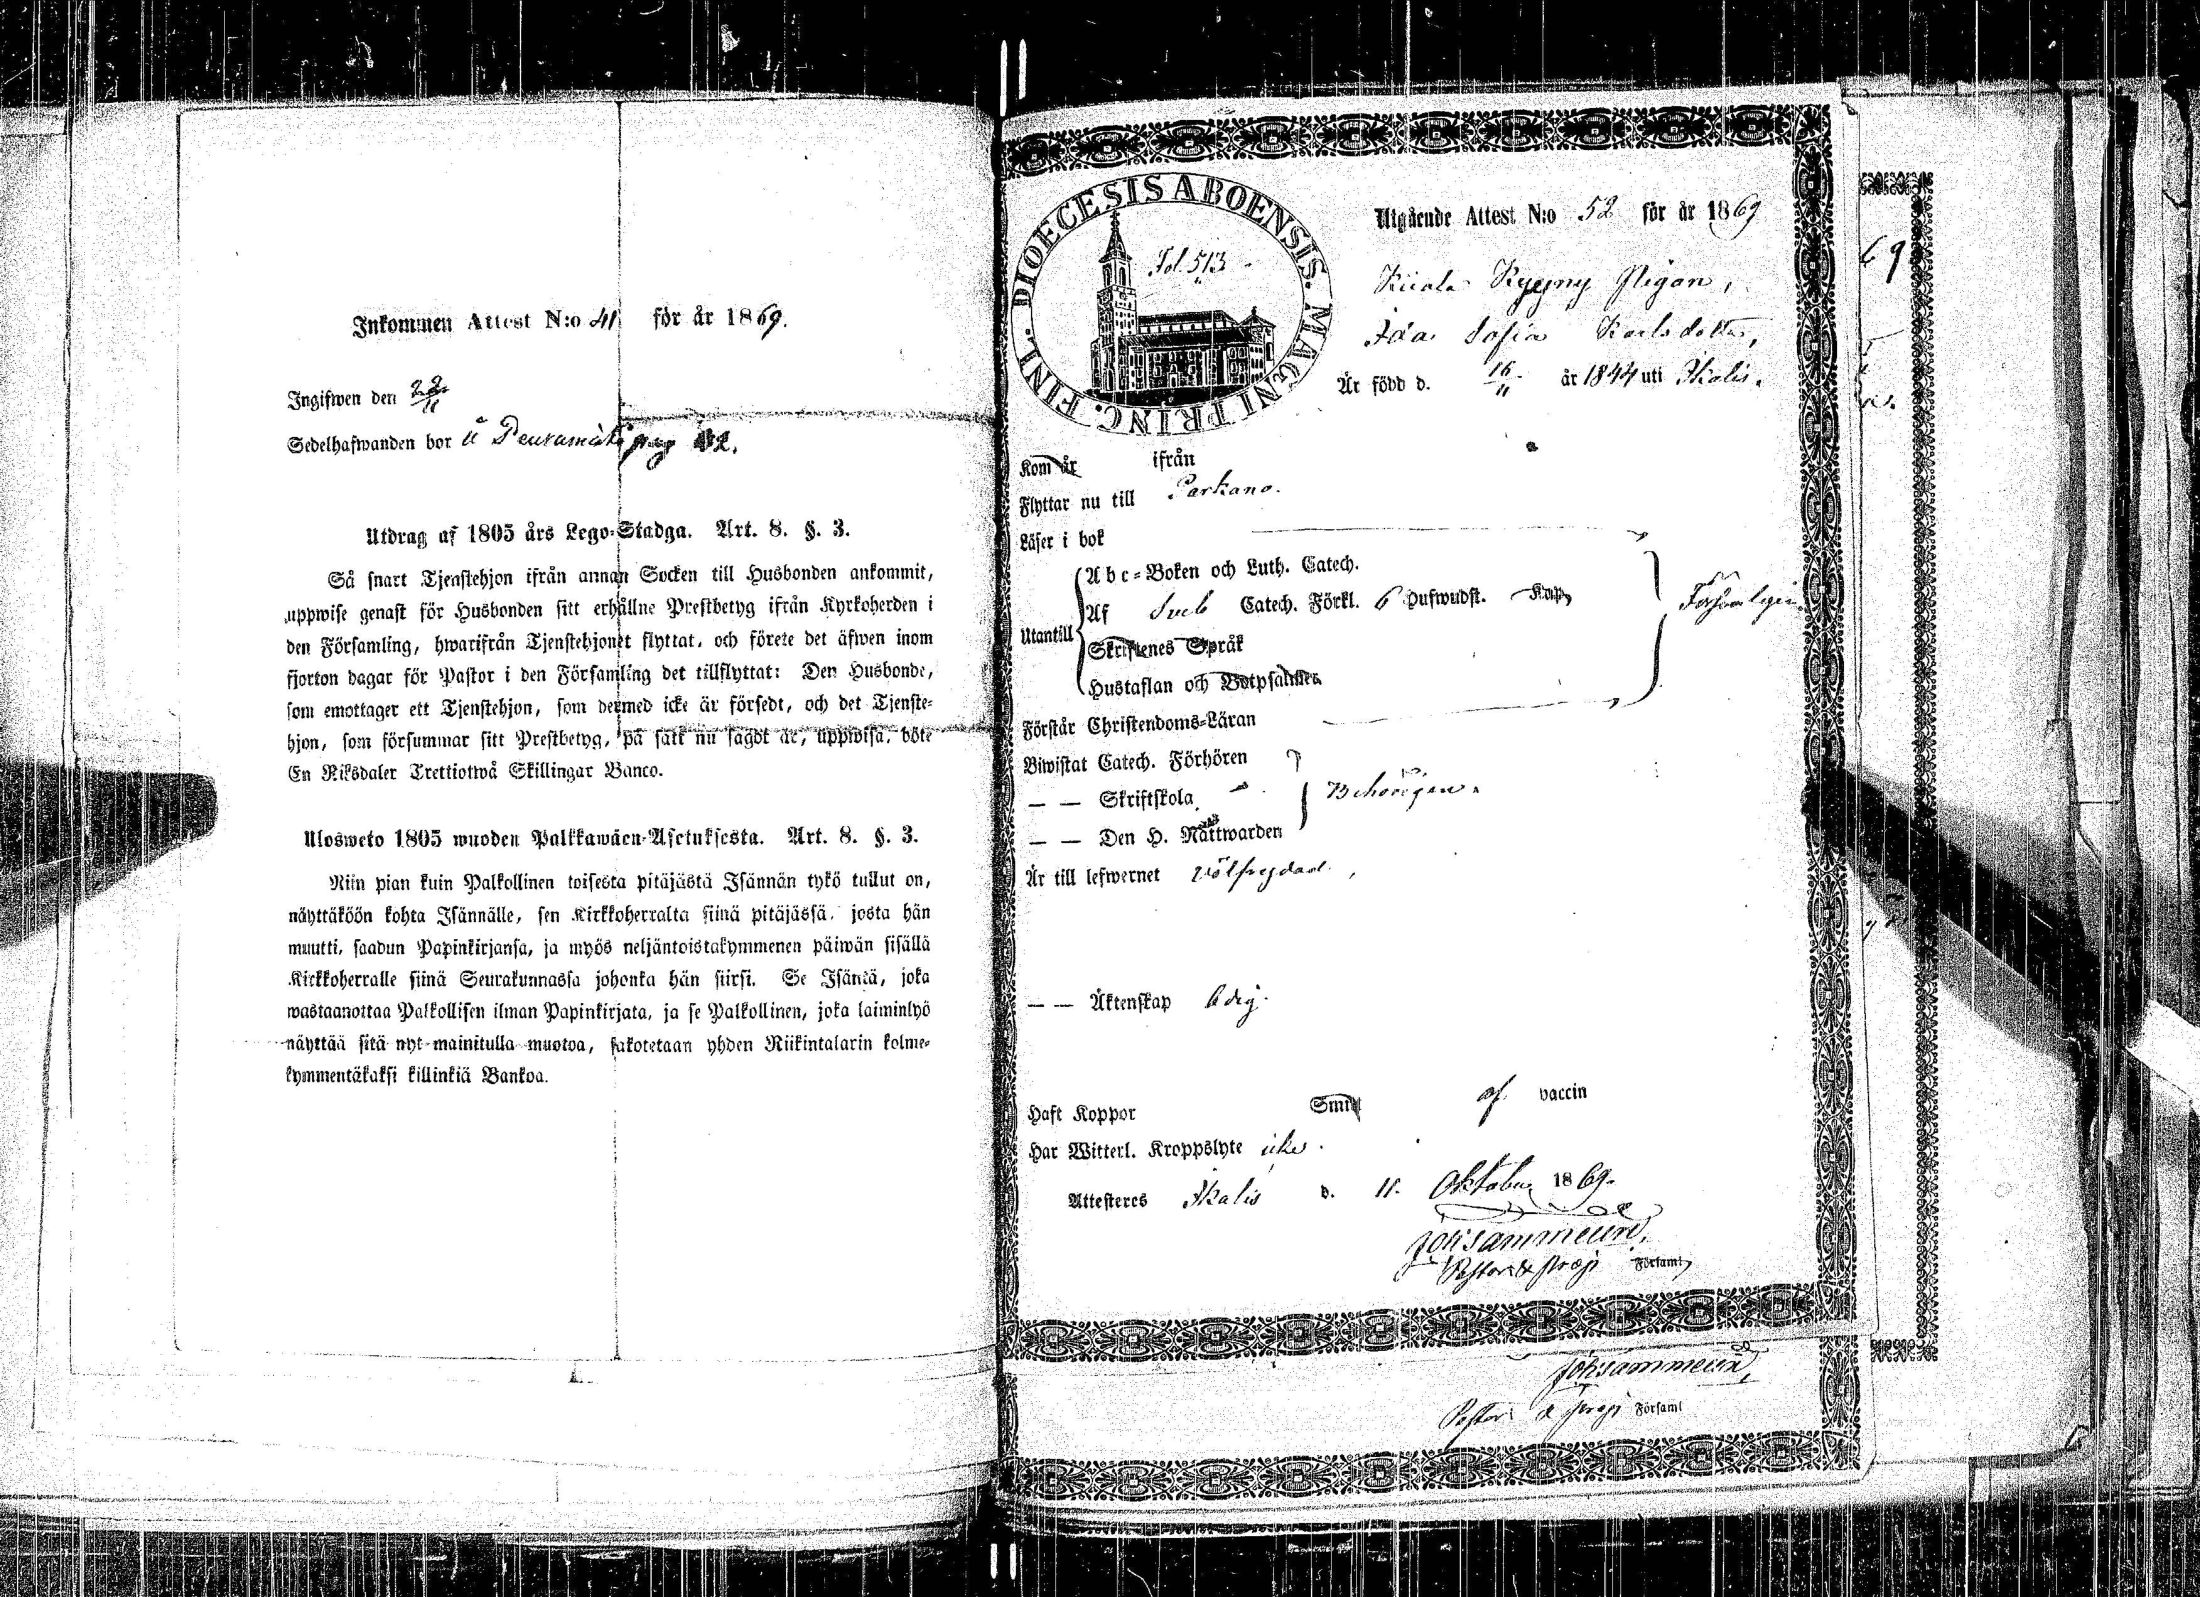 Inkommen Attest N:o 41 för år 1869.
Ingifwen den 22/11
Sedelhafwanden bor å Peuramäki pag 42.
Utdrag af 1805 års Lego-Stadga. Art. 8. §. 3.
Så snart Tjenstehjon ifrån annan Socken till Husbonden ankommit,
uppwise genast för Husbonden sitt erhållne Prestbetyg ifrån Kyrkoherden i
den Församling, hwarifrån Tjenstehjonet flyttat, och förete det äfwen inom
fjorton dagar för Pastor i den Församling det tillflyttat: Den Husbonde,
som emottager ett Tjenstehjon, som dermed icke är försedt, och det Tjenste-
hjon, som försummar sitt Prestbetyg, på sätt nu sagdt är, uppwisa, böte
En Riksdaler Trettiotwå Skillingar Banco.
Ulosweto 1805 wuoden Palkkawäen-Asetuksesta. Art. 8. §. 3.
Niin pian kuin Palkollinen toisesta pitäjästä Isännän tykö tullut on,
näyttäköön kohta Isännälle, sen Kirkkoherralta siinä pitäjässä, josta hän
muutti, saadun Papinkirjansa, ja myös neljäntoistakymmenen päiwän sisällä
Kirkkoherralle siinä Seurakunnassa johonka hän siirsi. Se Isäntä, joka
wastaanottaa Palkollisen ilman Papinkirjata, ja se Palkollinen, joka laiminlyö
näyttää sitä nyt mainitulla muotoa, sakotetaan yhden Riikintalarin kolme-
kymmentäkaksi killinkiä Bankoa.
DIOECESIS ABOENSIS. MAGNI PRINC. FINL.
Fol. 513
Utgående Attest N:o 52 för år 1869
Pigan,
Ida Sofia Karlsdotter,
Är född d. 16/11 år 1844 uti Ikalis.
Kom år ifrån
Flyttar nu till Parkano.
Läser i bok
Abc-Boken och Luth. Catech.
Af Sveb Catech. Förkl. 6 Hufwudst. Kap.
Utantill
Skriftenes Språk
Hustaflan och Botpsalmer
Försvarligen
Förstår Christendoms-Läran
Biwistat Catech. Förhören
— — Skriftskola
Behörigen.
— — Den H. Nattwarden
Är till lefwernet välfrejdad,
— — Äktenskap ledig.
Haft Koppor Smitt af vaccin
Har Witterl. Kroppslyte icke.
Attesteres Ikalis d. 11. Oktober 1869.
Joh Sammelin,
Pastor & Præp Församl
Joh Sammelin,
Pastor & Præp Församl
69